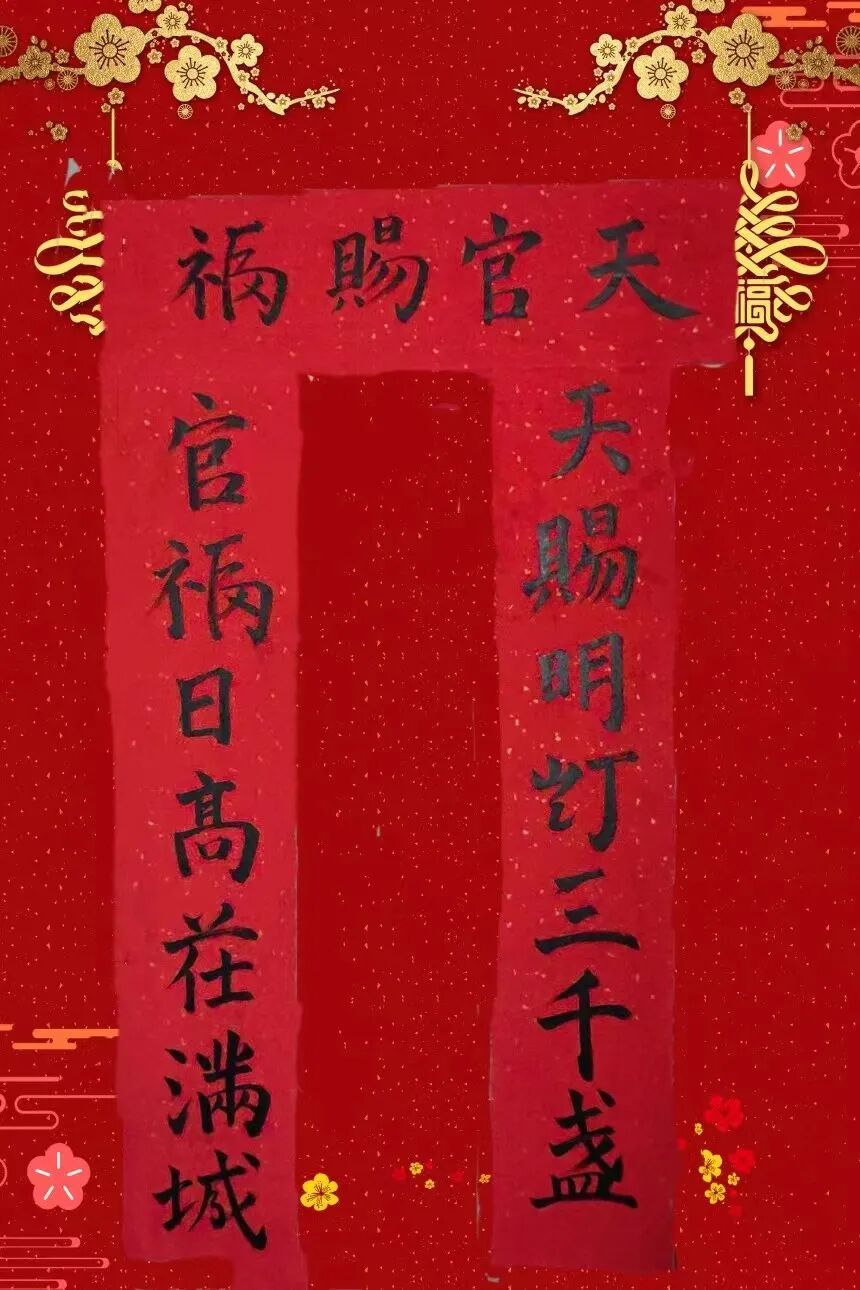 天官賜福
天賜明灯三千盏
官福日高茌满城